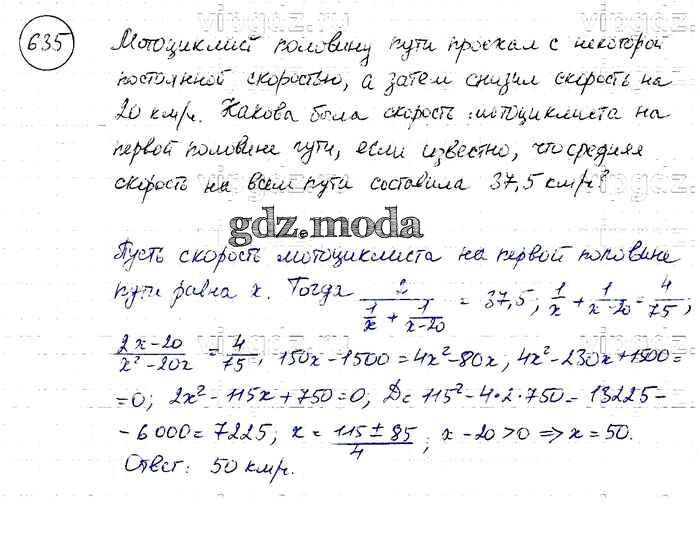 vipgdz.ru
635
Мотоциклист половину пути проехал с некоторой
постоянной скоростью, а затем снизил скорость на
20 км/ч. Какова была скорость мотоциклиста на
первой половине пути, если известно, что средняя
скорость на всем пути составила 37,5 км/ч?
gdz.moda
Пусть скорость мотоциклиста на первой половине
пути равна x. Тогда 2/(1/x + 1/(x-20)) = 37,5; 1/x + 1/(x-20) = 4/75;
(2x-20)/(x²-20x) = 4/75; 150x-1500=4x²-80x, 4x²-230x+1500=
=0; 2x²-115x+750=0; D=115²-4·2·750=13225-
-6000=7225; x = (115±85)/4; x-20>0 ⇒ x=50.
Ответ: 50 км/ч.